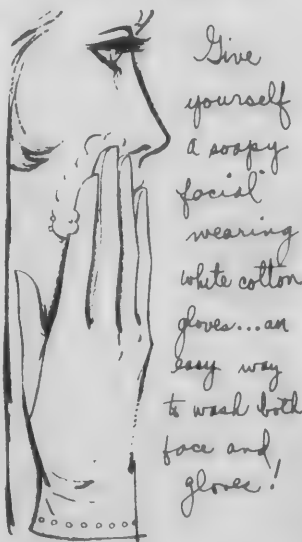 Give
yourself
a soapy
facial
wearing
white cotton
gloves...an
easy way
to wash both
face and
gloves!